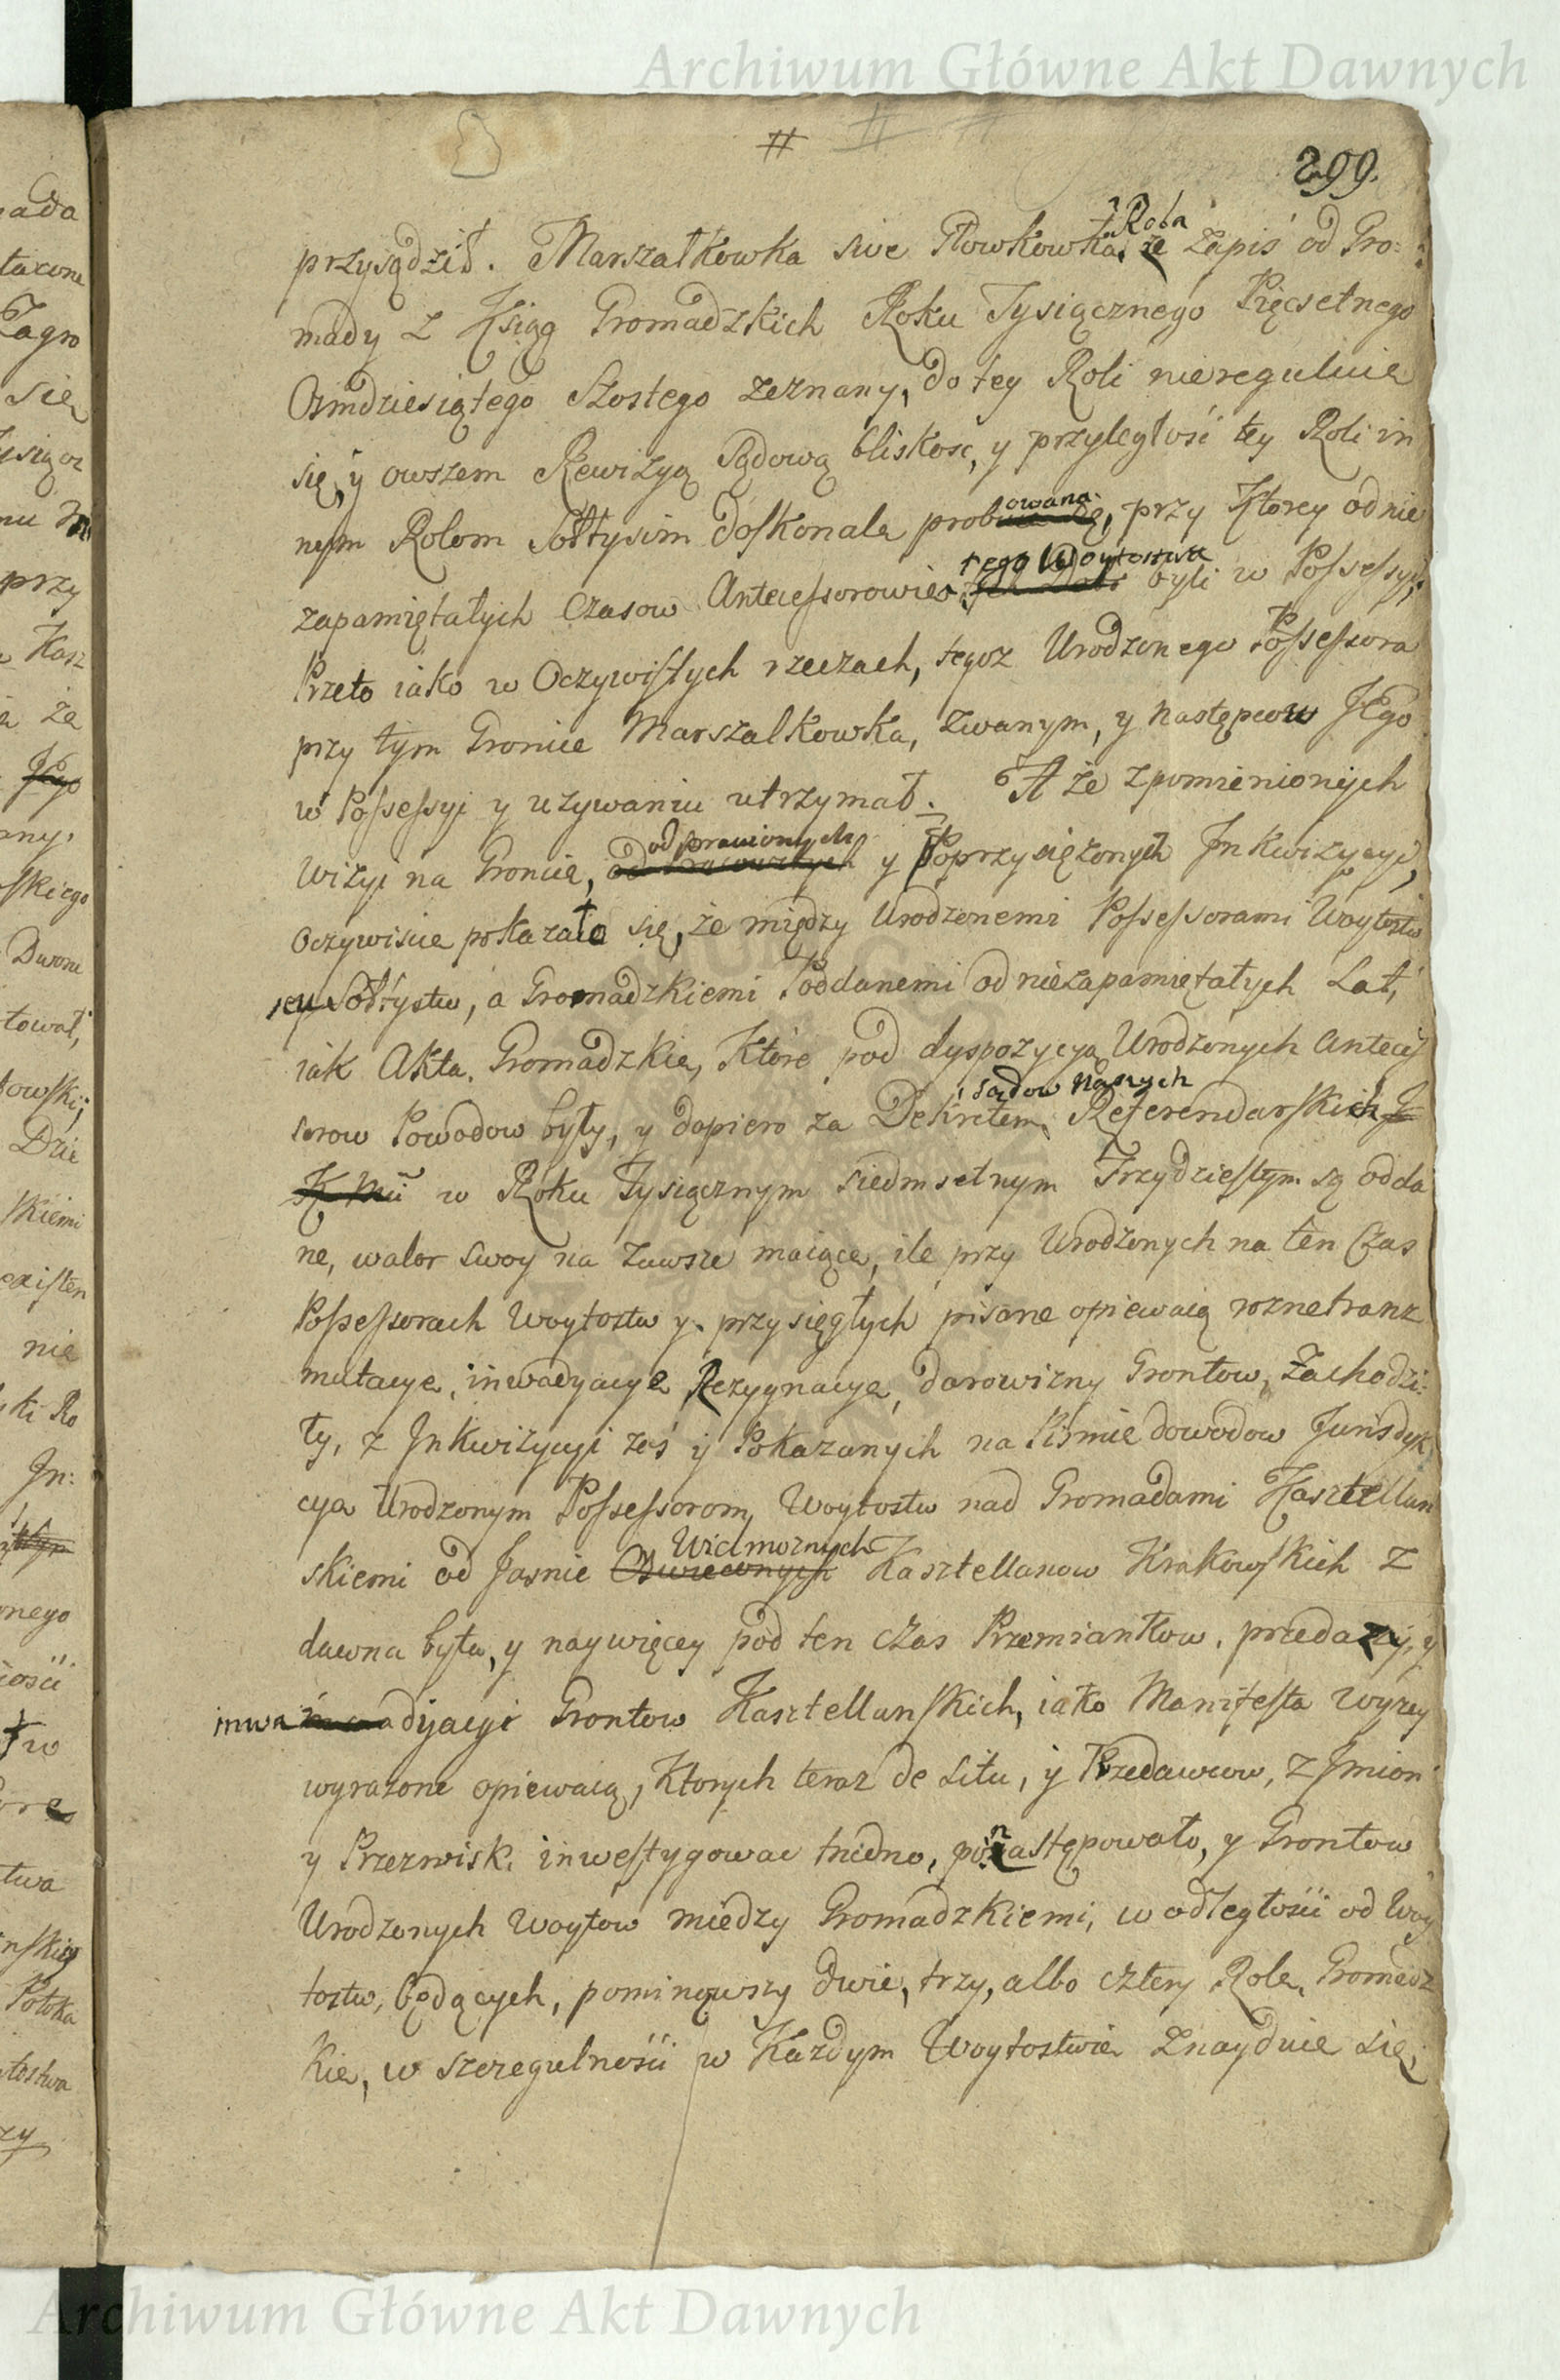 Archiwum Główne Akt Dawnych
#
299.
Rola
przysądził. Marszałkowka sive Płowkowka, że zapis od Gro:
mady z Ksiąg Gromadzkich Roku Tysiącznego Pięcsetnego
Osmdziesiątego Szostego zeznany, do tey Roli niereguluie
się, y owszem Rewizyą Sądową bliskosc, y przyległość tey Roli in
owana
nym Rolom Sołtysim doskonale prob, przy Ktorey od nie
tego Woytostwa
zapamiętałych Czasow Antecessorowie byli w Possessyi,
Przeto iako w Oczywistych rzeczach, tegoz Urodzonego Possessora
przy tym Groncie Marszalkowka, zwanym, y następcow JEgo
w Possessyi y uzywaniu utrzymał. A że z pomienionych
odprawionych
Wizyi na Groncie, y Poprzysiężonych Inkwizycyi,
Oczywiscie pokazało się, że między Urodzonemi Possessorami Woytostw
seu Sołtystw, a Gromadzkiemi Poddanemi od niezapamiętałych Lat,
iak Akta Gromadzkie, Które pod dyspozycyą Urodzonych Anteces
Sądow Naszych
sorow Powodow były, y dopiero za Dekretem Referendarskich
w Roku Tysiącznym siedmsetnym Trzydziestym są odda
ne, walor swoy na zawsze maiące, ile przy Urodzonych na ten Czas
Possessorach Woytostw y przysięgłych pisane opiewaią rozne tranz
mutacye, inwadyacye Rezygnacye, darowizny Grontow, zachodzi:
ły, z Inkwizycyi zaś y Pokazanych na Piśmie dowodow Jurisdyk
cya Urodzonym Possessorom Woytostw nad Gromadami Kasztellan
Wielmoznych
skiemi od Jasnie Oswieconych Kasztellanow Krakowskich z
dawna była, y naywięcey pod ten czas Przemiankow, przedazy, y
inwadyacyi Grontow Kasztellanskich, iako Manifesta wyzey
wyrazone opiewaią, Ktorych teraz de situ, y Przedawcow, z Jmion
y Przezwisk inwestygowac trudno, ponastępowało, y Grontow
Urodzonych Woytow miedzy Gromadzkiemi, w odległosci od Woy
tostw, będących, pominąwszy dwie, trzy, albo cztery Role, Gromadz
kie, w szczegulnosci w Kazdym Woytostwie znayduie się,
Archiwum Główne Akt Dawnych